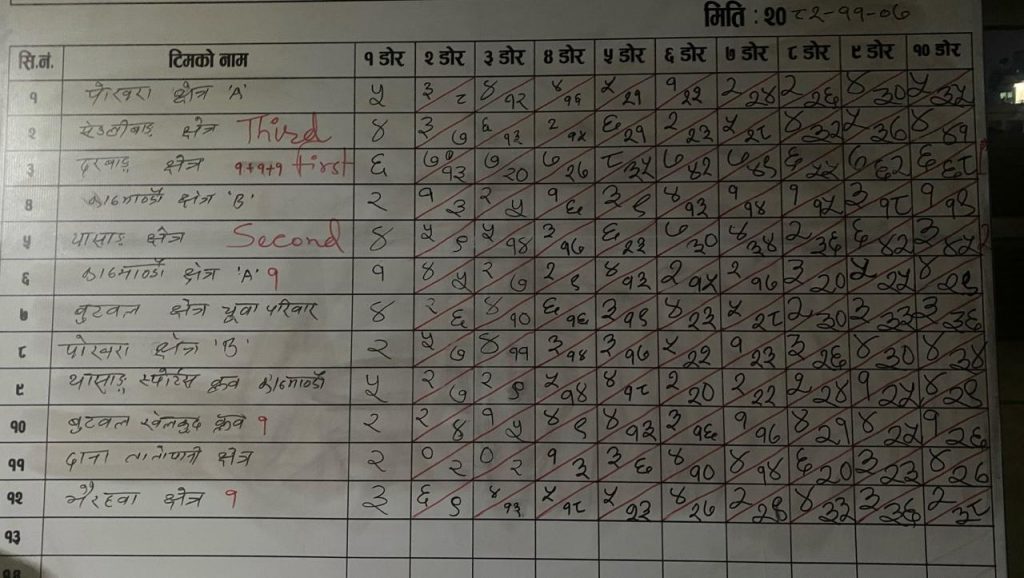 मिति : २० ८२-११-०७
सि.नं. टिमको नाम १ डोर २ डोर ३ डोर ४ डोर ५ डोर ६ डोर ७ डोर ८ डोर ९ डोर १० डोर
१ पोखरा क्षेत्र 'A' ५ ३/८ ४/१२ ४/१६ ५/२१ १/२२ २/२४ २/२६ ४/३० ५/३५
२ क्षेत्र Third ४ ३/७ ६/१३ २/१५ ६/२१ २/२३ ५/२८ ४/३२ ४/३६ ५/४१
३ दरबाङ क्षेत्र १+१+१ first ६ ७/१३ ७/२० ७/२७ ८/३५ ७/४२ ७/४९ ६/५५ ७/६२ ६/६८
४ काठमाण्डौ क्षेत्र 'B' २ १/३ २/५ १/६ ३/९ ४/१३ १/१४ १/१५ ३/१८ १/१९
५ थासाङ क्षेत्र Second ४ ५/९ ५/१४ ३/१७ ६/२३ ७/३० ४/३४ २/३६ ६/४२ ३/४५
६ काठमाण्डौ क्षेत्र 'A' १ १ ४/५ २/७ २/९ ४/१३ २/१५ २/१७ ३/२० ५/२५ ४/२९
७ बुटवल क्षेत्र युवा परिवार ४ २/६ ४/१० ६/१६ ३/१९ ४/२३ ५/२८ २/३० ३/३३ ३/३६
८ पोखरा क्षेत्र 'B' २ ५/७ ४/११ ३/१४ ३/१७ ५/२२ १/२३ ३/२६ ४/३० ४/३४
९ थासाङ स्पोर्टस क्लब काठमाण्डौ ५ २/७ २/९ ५/१४ ४/१८ २/२० २/२२ २/२४ १/२५ ४/२९
१० बुटवल खेलकुद क्लब १ २ २/४ १/५ ४/९ ४/१३ ३/१६ १/१७ ४/२१ ४/२५ १/२६
११ दाना तातोपानी क्षेत्र २ ०/२ ०/२ १/३ ३/६ ४/१० ४/१४ ६/२० ३/२३ ४/२६
१२ भैरहवा क्षेत्र १ ३ ६/९ ४/१३ ५/१८ ५/२३ ४/२७ २/२९ ४/३३ ३/३६ २/३८
१३
१४